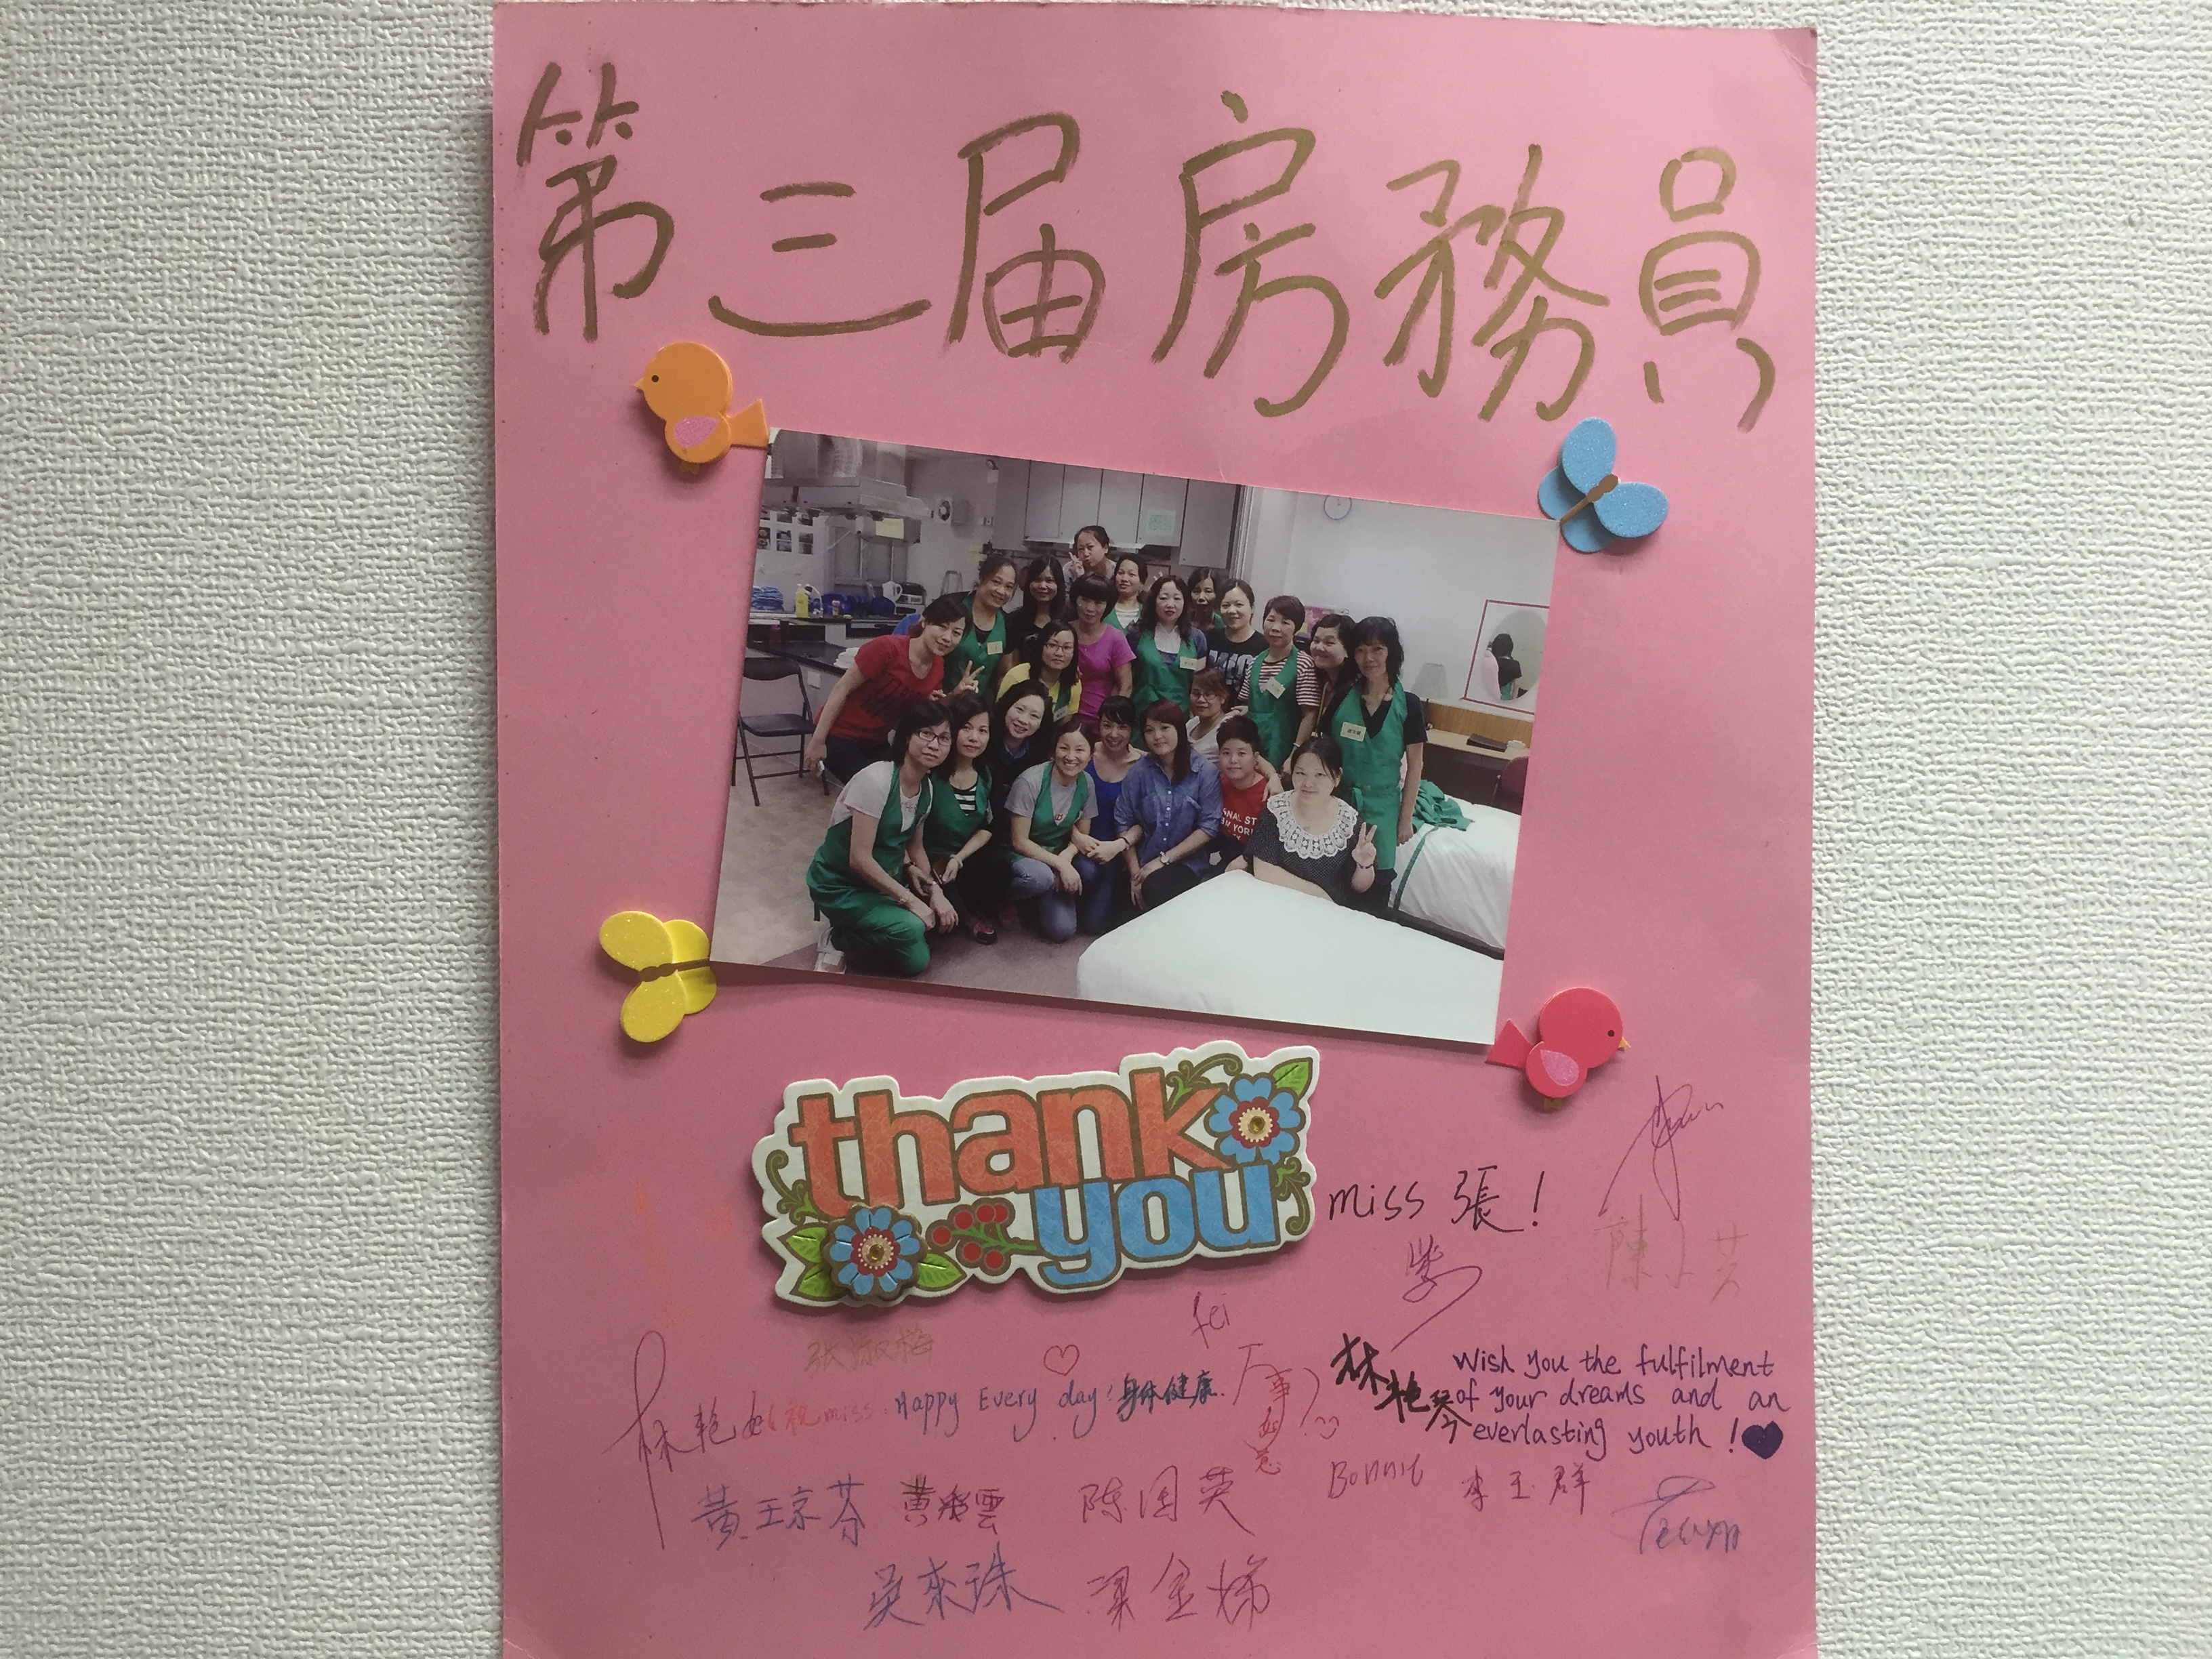 第三届房務員
thank
you
miss 張！
陳
fei
张淑梅
林艳
祝miss Happy Every day！身体健康.
万事如意
林艳琴
Wish you the fulfilment
of your dreams and an
everlasting youth !
黄琼芬 黄彩雲 陈国英 Bonnie 李玉群
吴來珠 梁金娣